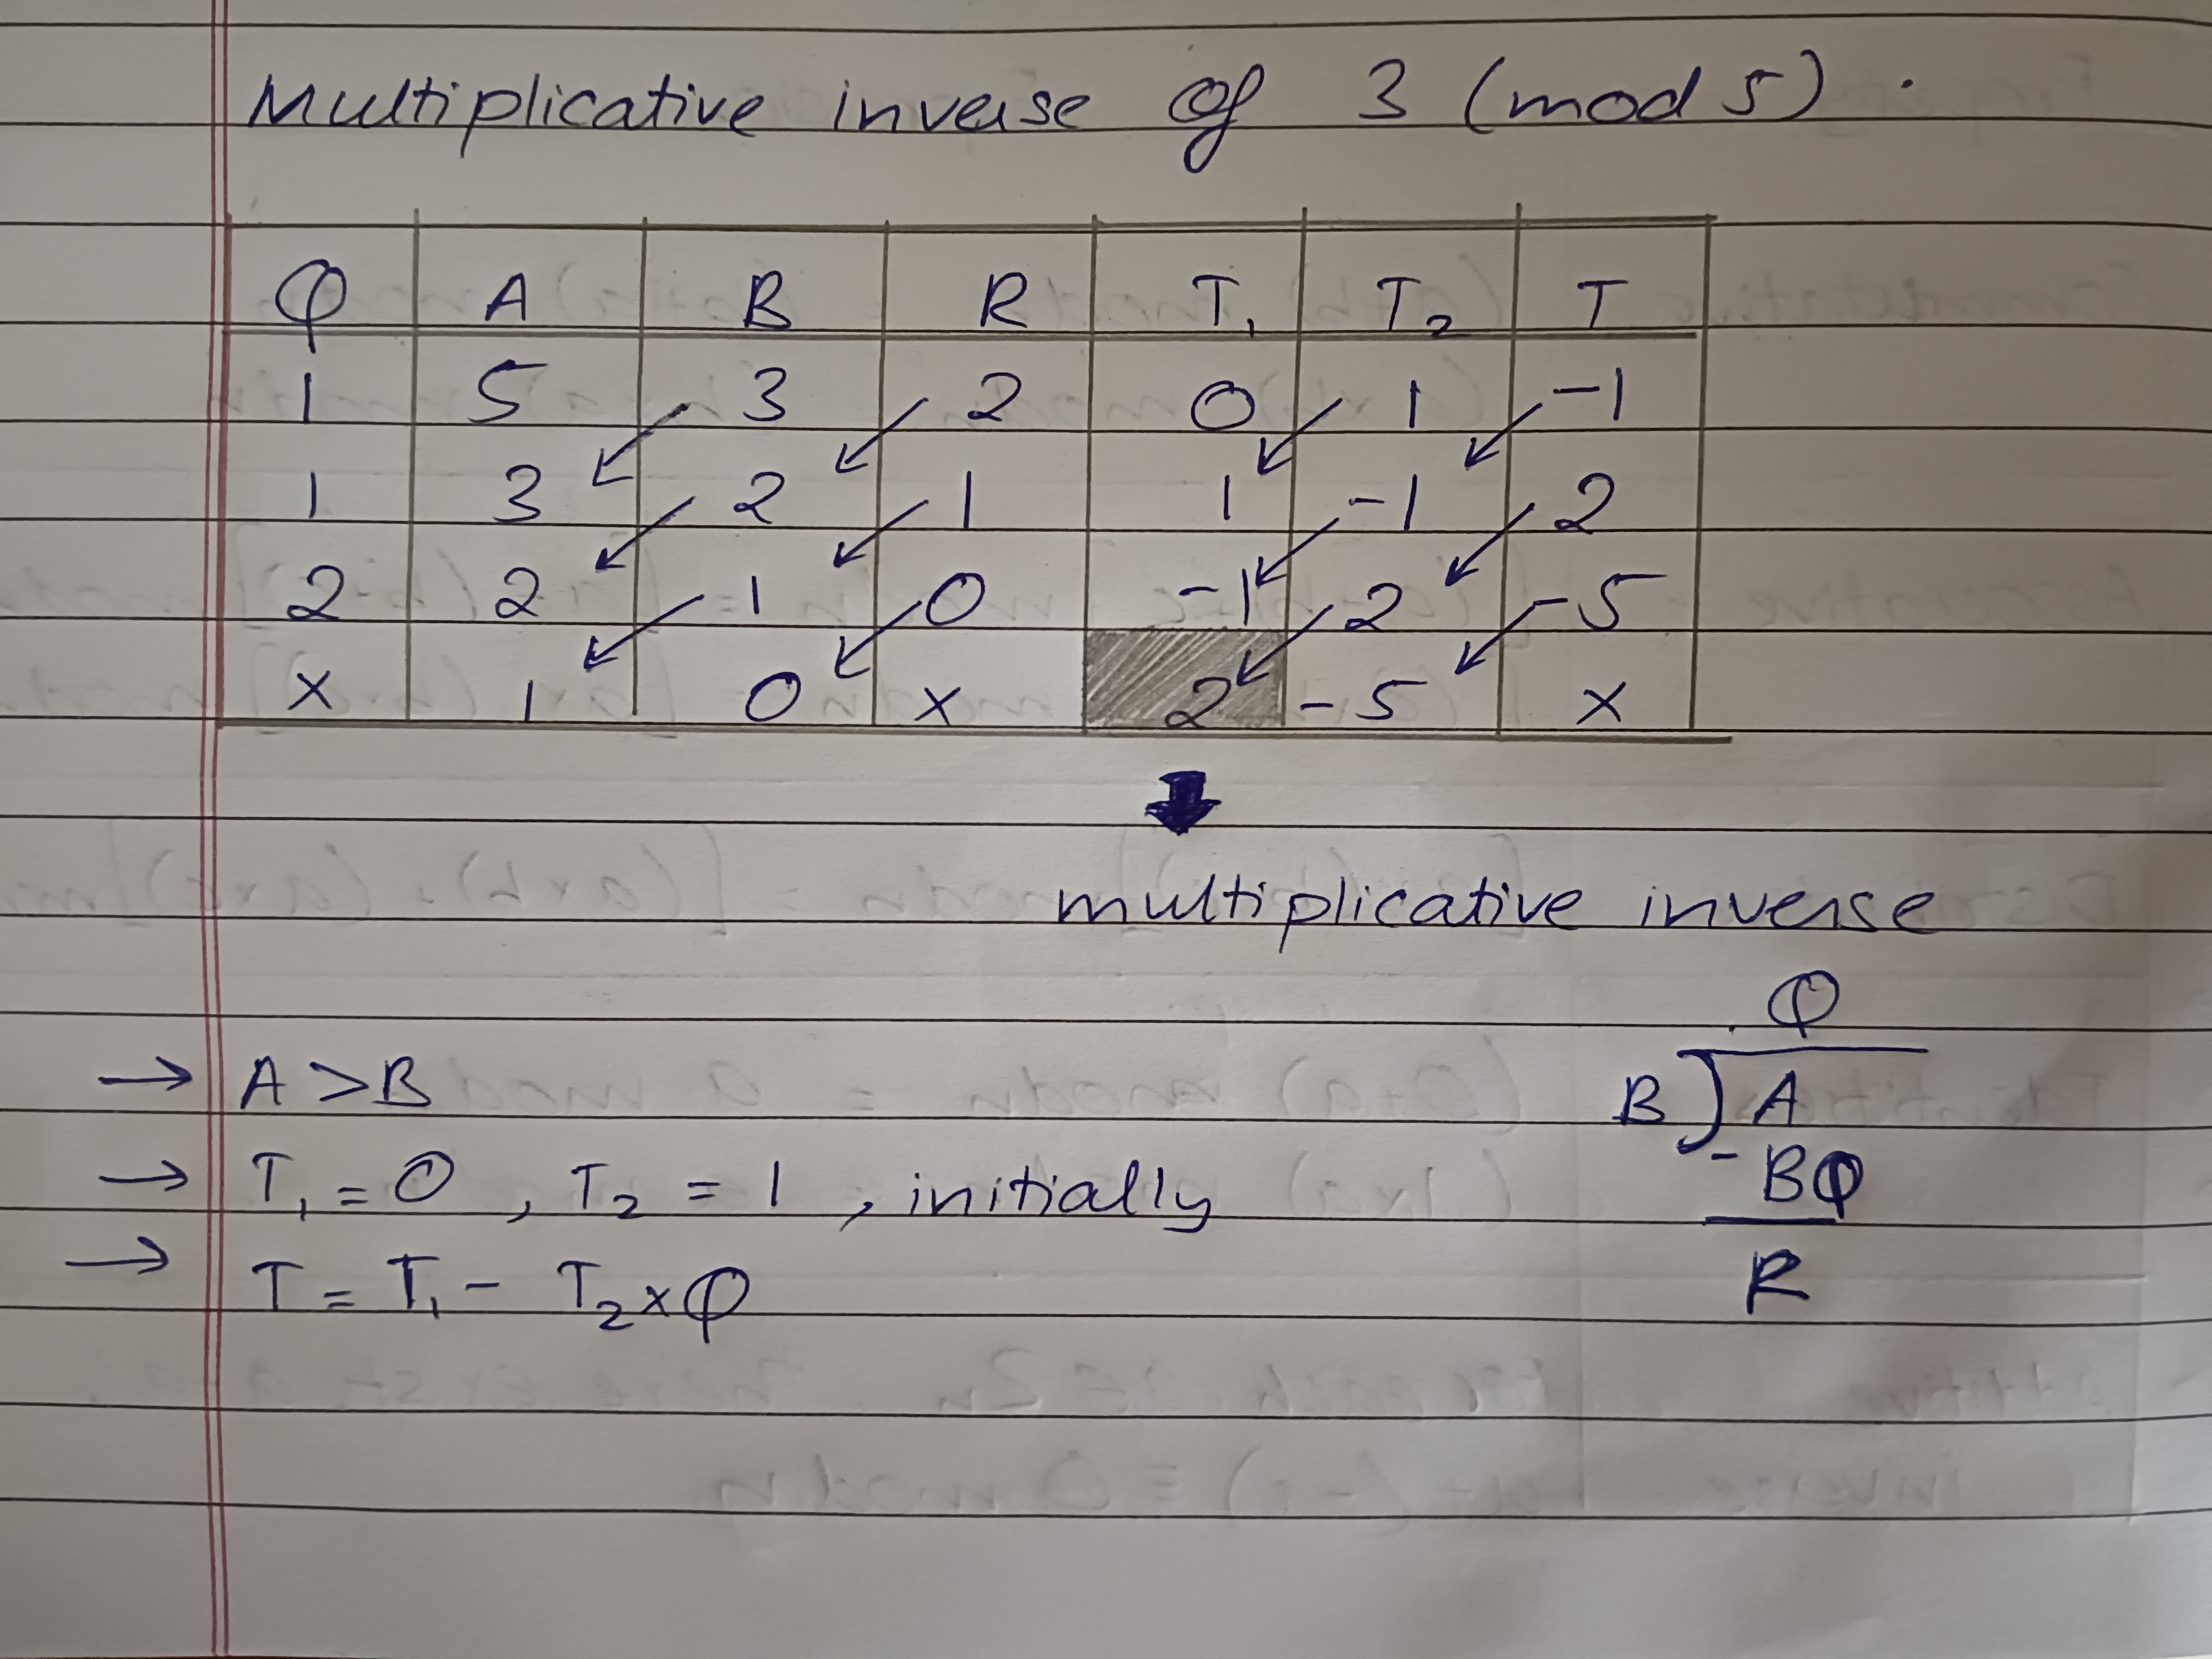 Multiplicative inverse of 3 (mod 5).
Q A B R T₁ T₂ T
1 5 3 2 0 1 -1
1 3 2 1 1 -1 2
2 2 1 0 -1 2 -5
x 1 0 x 2 -5 x
multiplicative inverse
Q
→ A > B B ) A
- BQ
→ T₁ = 0 , T₂ = 1 , initially
R
→ T = T₁ - T₂ x Q